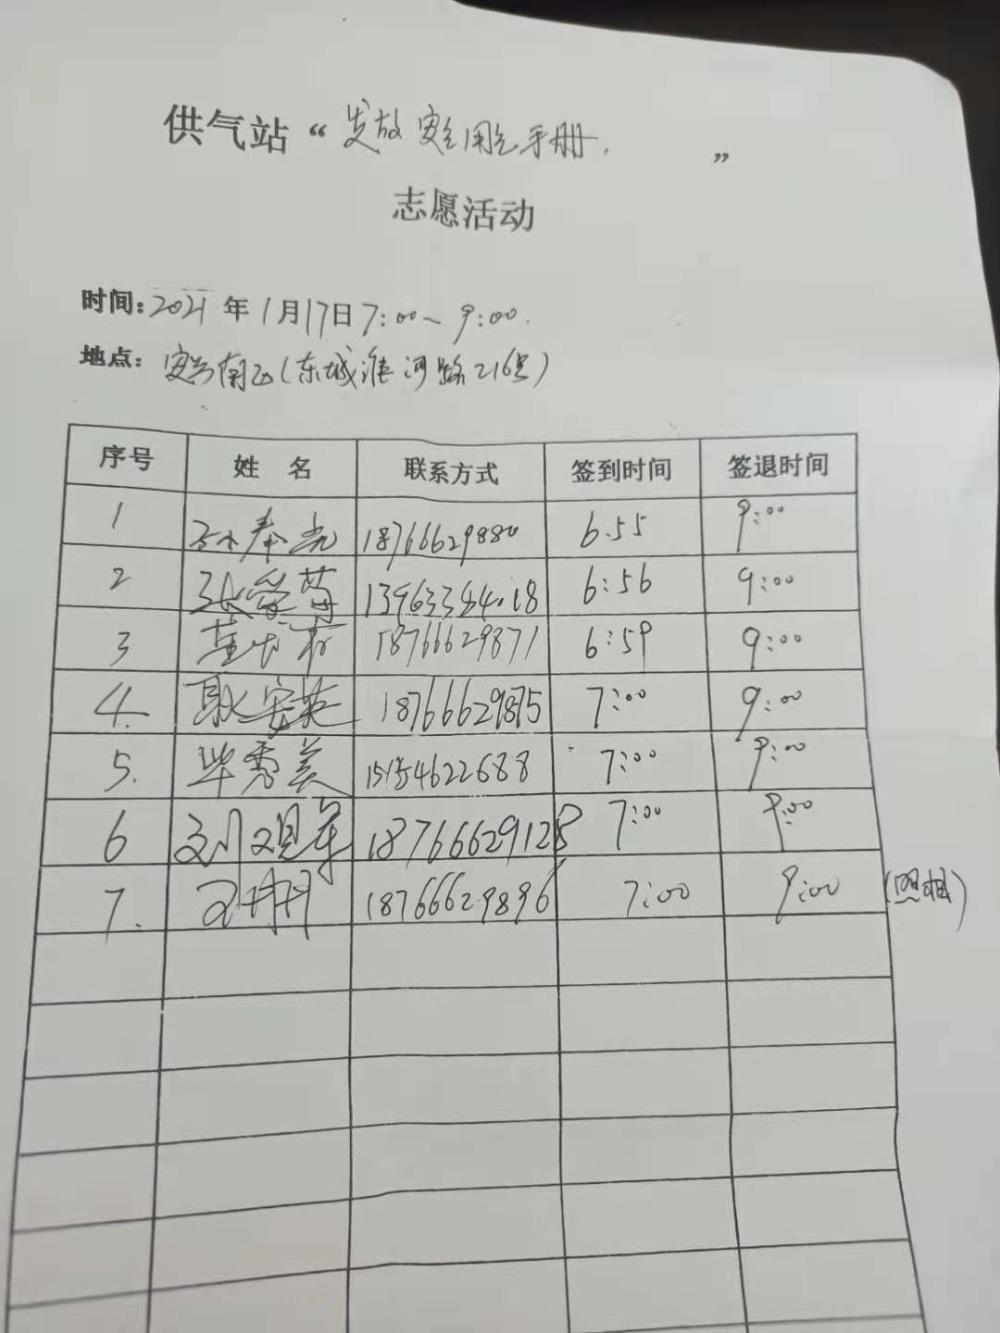 供气站“发放安全用气手册. ”
志愿活动
时间:2021年1月17日7:00~9:00.
地点: 安兴南区(东城淮河路216号)
序号 姓名 联系方式 签到时间 签退时间
1 奉光 18766629880 6.55 9:00
2 张爱苺 6:56 9:00
3 18766629871 6:59 9:00
4. 耿安英 18766629875 7:00 9:00
5. 毕秀美 4622688 7:00 9:00
6 刘观军 18766629128 7:00 9:00
7. 18766629896 7:00 9:00 (照相)